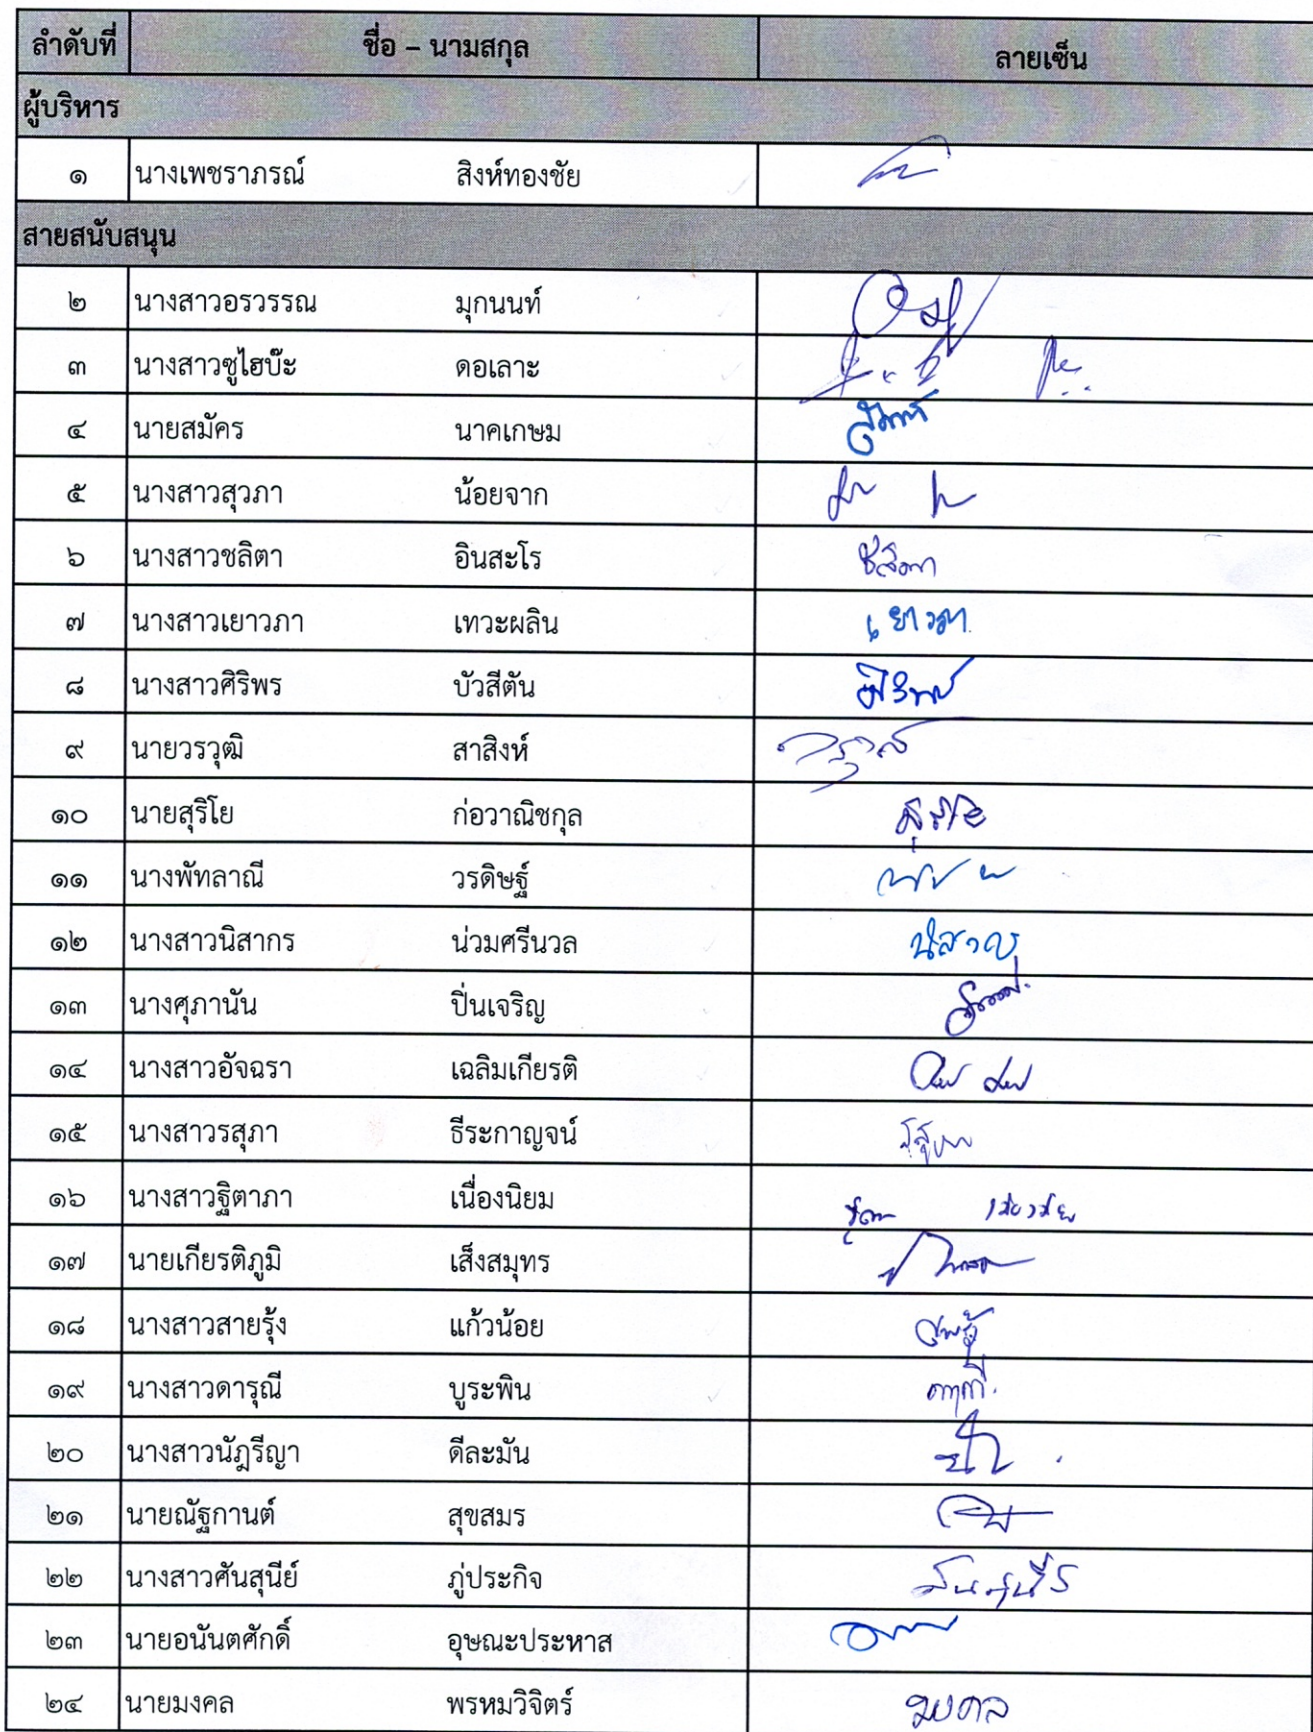 ลำดับที่ ชื่อ – นามสกุล ลายเซ็น
ผู้บริหาร
๑ นางเพชราภรณ์ สิงห์ทองชัย
สายสนับสนุน
๒ นางสาวอรวรรณ มุกนนท์
๓ นางสาวซูไฮบ๊ะ ดอเลาะ
๔ นายสมัคร นาคเกษม
๕ นางสาวสุวภา น้อยจาก
๖ นางสาวชลิตา อินสะโร ชลิตา
๗ นางสาวเยาวภา เทวะผลิน เยาวภา
๘ นางสาวศิริพร บัวสีตัน ศิริพร
๙ นายวรวุฒิ สาสิงห์
๑๐ นายสุริโย ก่อวาณิชกุล สุริโย
๑๑ นางพัทลาณี วรดิษฐ์
๑๒ นางสาวนิสากร น่วมศรีนวล นิสากร
๑๓ นางศุภานัน ปิ่นเจริญ
๑๔ นางสาวอัจฉรา เฉลิมเกียรติ
๑๕ นางสาวรสุภา ธีระกาญจน์ รสุภา
๑๖ นางสาวฐิตาภา เนื่องนิยม
๑๗ นายเกียรติภูมิ เส็งสมุทร
๑๘ นางสาวสายรุ้ง แก้วน้อย สายรุ้ง
๑๙ นางสาวดารุณี บูระพิน ดารุณี
๒๐ นางสาวนัฎรีญา ดีละมัน
๒๑ นายณัฐกานต์ สุขสมร
๒๒ นางสาวศันสุนีย์ ภู่ประกิจ ศันสุนีย์
๒๓ นายอนันตศักดิ์ อุษณะประหาส
๒๔ นายมงคล พรหมวิจิตร์ มงคล